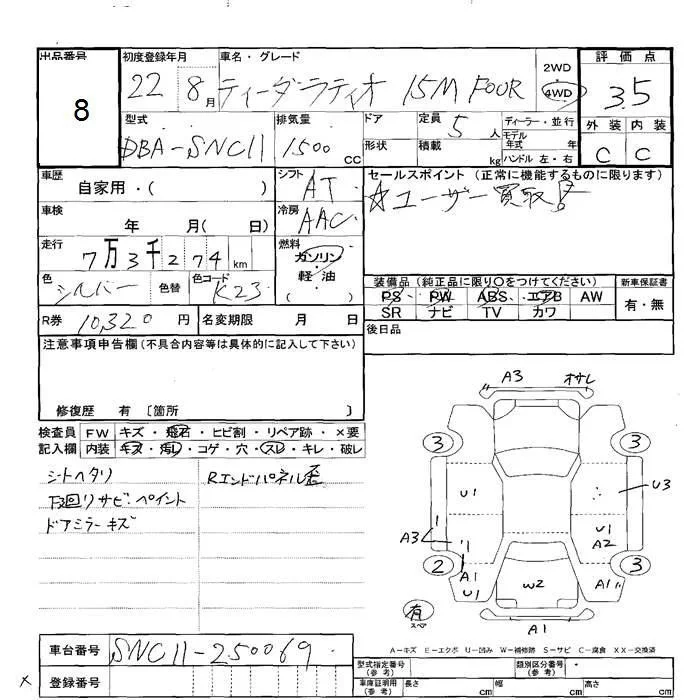 出品番号
8
初度登録年月
22 8月
車名・グレード
ティーダラティオ 15M FOUR
2WD
4WD
評価点
3.5
外装 内装
C C
型式
DBA-SNC11
排気量
1500 cc
ドア
形状
定員 5人
積載 kg
ディーラー・並行
モデル年式 年
ハンドル 左・右
車歴
自家用・( )
シフト
AT
セールスポイント (正常に機能するものに限ります)
☆ユーザー買取!
車検
年 月( 日)
冷房
AAC
走行
7万3千274km
燃料
ガソリン・軽油
色
シルバー
色替
色コード
K23
装備品 (純正品に限り〇をつけてください)
PS PW ABS エアB AW
SR ナビ TV カワ
新車保証書
有・無
R券 10,320円
名変期限 月 日
後日品
注意事項申告欄(不具合内容等は具体的に記入して下さい)
修復歴 有 〔箇所 〕
検査員記入欄
FW キズ・飛石・ヒビ割・リペア跡・×要
内装 キズ・汚レ・コゲ・穴・スレ・キレ・破レ
シートヘタリ
下回りサビ・ペイント
ドアミラーキズ
Rエンドパネル歪
A3 オサレ
3 3
U1 U3
A3 U1 A2
2 3
A1 U1 W2 A1
有
スペア
A1
A-キズ E-エクボ U-凹み W-補修跡 S-サビ C-腐食 XX-交換済
車台番号
SNC11-250069
登録番号
型式指定番号(参考)
類別区分番号(参考)
車庫証明用(参考) 長さ cm 幅 cm 高さ cm